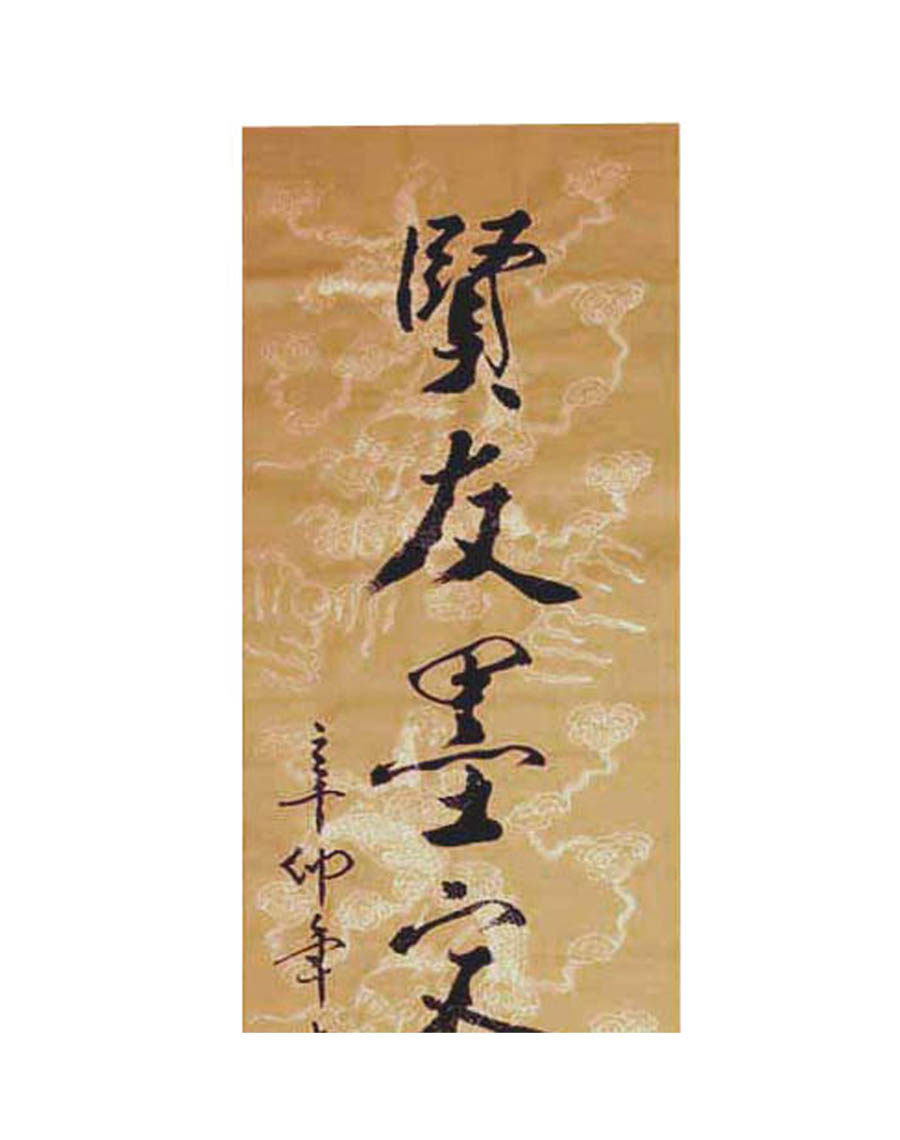 賢友墨
辛卯年